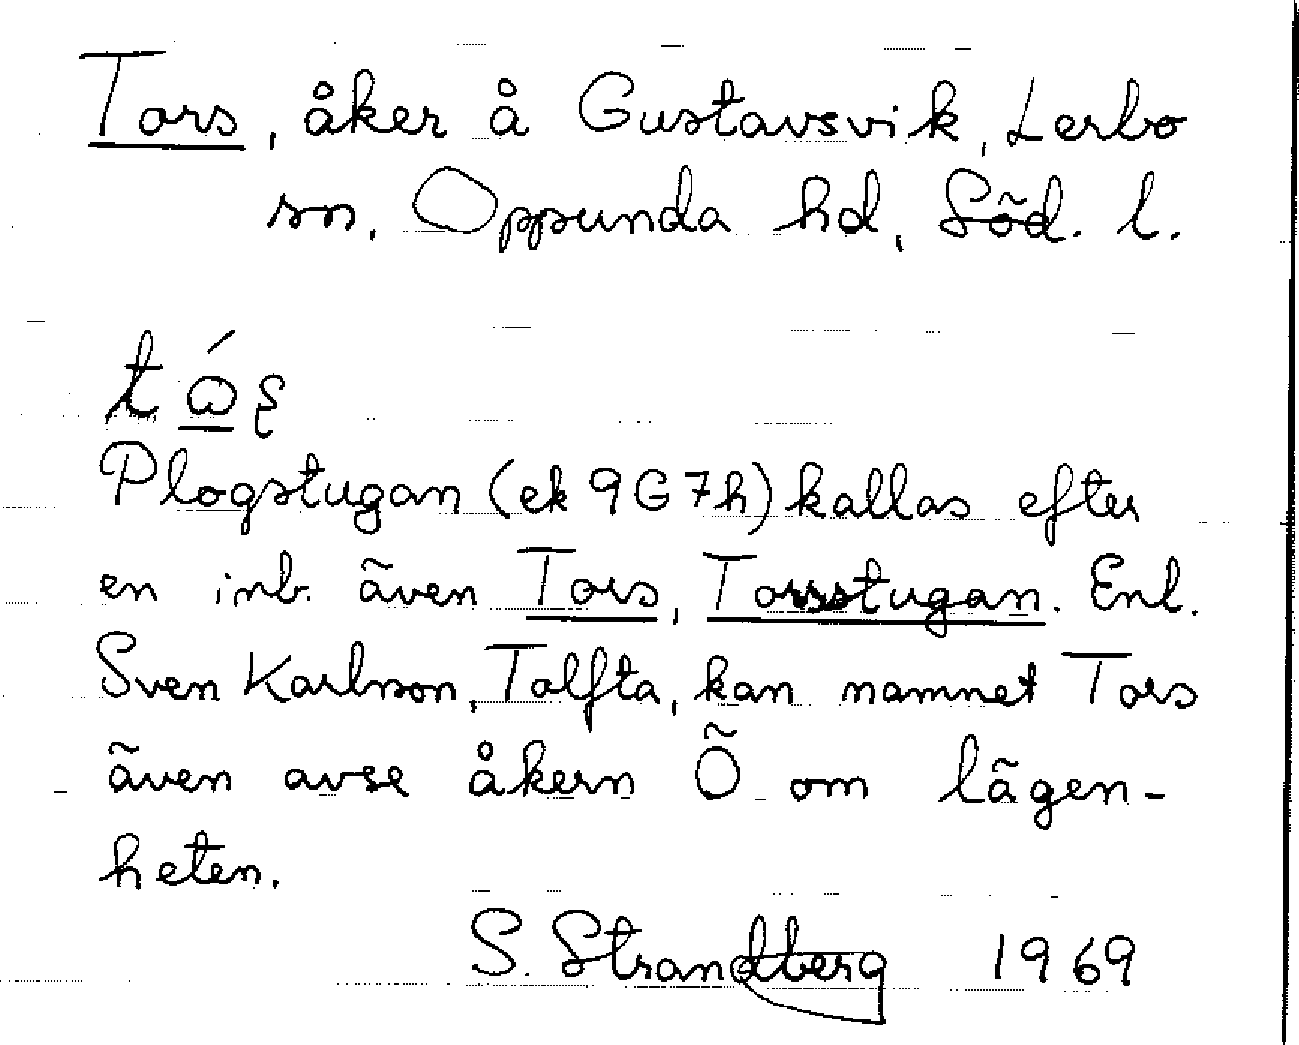 Tors, åker å Gustavsvik, Lerbo
sn, Oppunda hd, Söd. l.
Plogstugan (ek 9G7h) kallas efter
en inb. även Tors, Torsstugan. Enl.
Sven Karlsson, Tolfta, kan namnet Tors
även avse åkern Ö om lägen-
heten.
S. Strandberg 1969